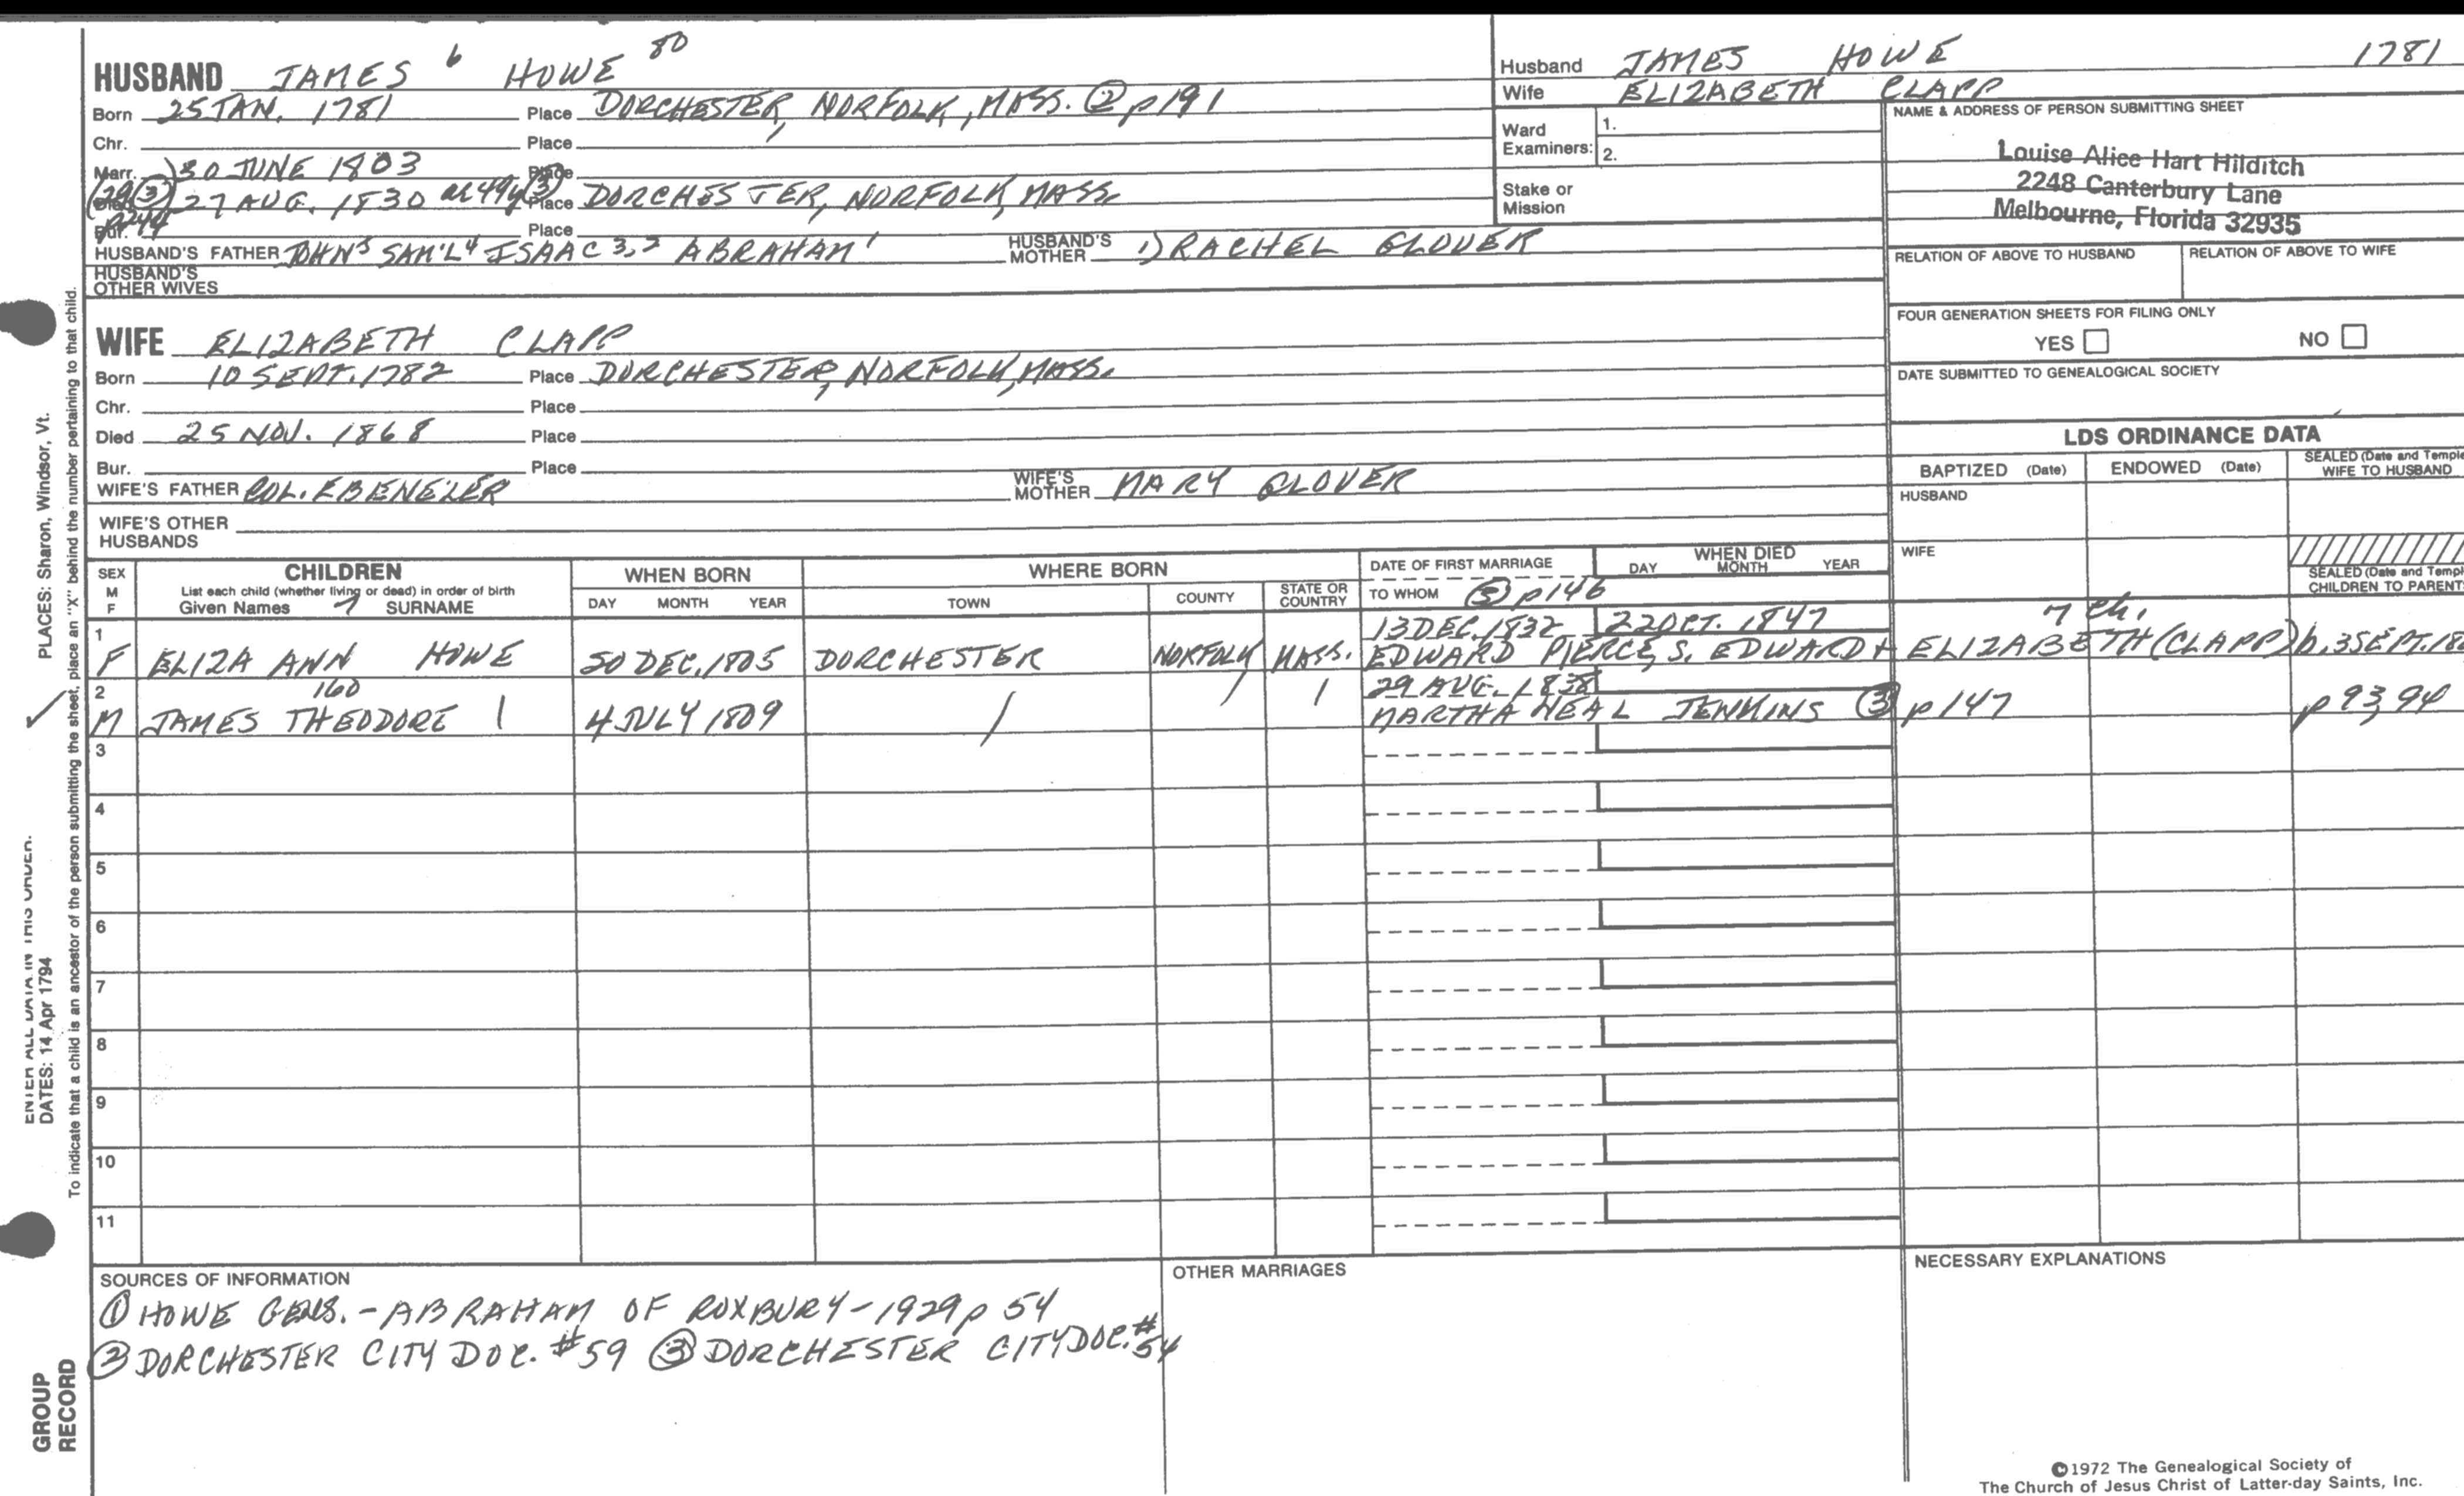 HUSBAND JAMES 6 HOWE 80
Born 25 JAN. 1781 Place DORCHESTER, NORFOLK, MASS. ② p191
Chr. Place
Marr. 30 JUNE 1803 Place
27 AUG. 1830 ae 49y (3) Place DORCHESTER, NORFOLK, MASS.
Bur. p244 Place
HUSBAND'S FATHER JOHN5 SAM'L4 ISAAC 3,2 ABRAHAM1 HUSBAND'S MOTHER 1) RACHEL GLOVER
HUSBAND'S OTHER WIVES
WIFE ELIZABETH CLAPP
Born 10 SEPT. 1782 Place DORCHESTER, NORFOLK, MASS.
Chr. Place
Died 25 NOV. 1868 Place
Bur. Place
WIFE'S FATHER COL. EBENEZER WIFE'S MOTHER MARY GLOVER
WIFE'S OTHER HUSBANDS
Husband JAMES HOWE 1781
Wife ELIZABETH CLAPP
Ward Examiners: 1.
2.
Stake or Mission
NAME & ADDRESS OF PERSON SUBMITTING SHEET
Louise Alice Hart Hilditch
2248 Canterbury Lane
Melbourne, Florida 32935
RELATION OF ABOVE TO HUSBAND RELATION OF ABOVE TO WIFE
FOUR GENERATION SHEETS FOR FILING ONLY
YES NO
DATE SUBMITTED TO GENEALOGICAL SOCIETY
LDS ORDINANCE DATA
BAPTIZED (Date) ENDOWED (Date) SEALED (Date and Temple WIFE TO HUSBAND
HUSBAND
WIFE
SEALED (Date and Templ CHILDREN TO PARENT
SEX M F CHILDREN List each child (whether living or dead) in order of birth Given Names 7 SURNAME
WHEN BORN DAY MONTH YEAR
WHERE BORN TOWN COUNTY STATE OR COUNTRY
DATE OF FIRST MARRIAGE TO WHOM ③ p146
WHEN DIED DAY MONTH YEAR
1 13 DEC. 1832 22 OCT. 1847 7 ch.
F ELIZA ANN HOWE 30 DEC. 1805 DORCHESTER NORFOLK MASS. EDWARD PIERCE, S. EDWARD + ELIZABETH (CLAPP) b. 3 SEPT. 180
2 160 29 AUG. 1838
M JAMES THEODORE 4 JULY 1809 MARTHA NEAL JENKINS ③ p147 p93,94
3
4
5
6
7
8
9
10
11
SOURCES OF INFORMATION
① HOWE GENS. - ABRAHAM OF ROXBURY - 1929 p 54
② DORCHESTER CITY DOC. #59 ③ DORCHESTER CITY DOC. #54
OTHER MARRIAGES
NECESSARY EXPLANATIONS
©1972 The Genealogical Society of
The Church of Jesus Christ of Latter-day Saints, Inc.
PLACES: Sharon, Windsor, Vt.
ENTER ALL DATA IN THIS ORDER.
DATES: 14 Apr 1794
To indicate that a child is an ancestor of the person submitting the sheet, place an "X" behind the number pertaining to that child.
GROUP
RECORD